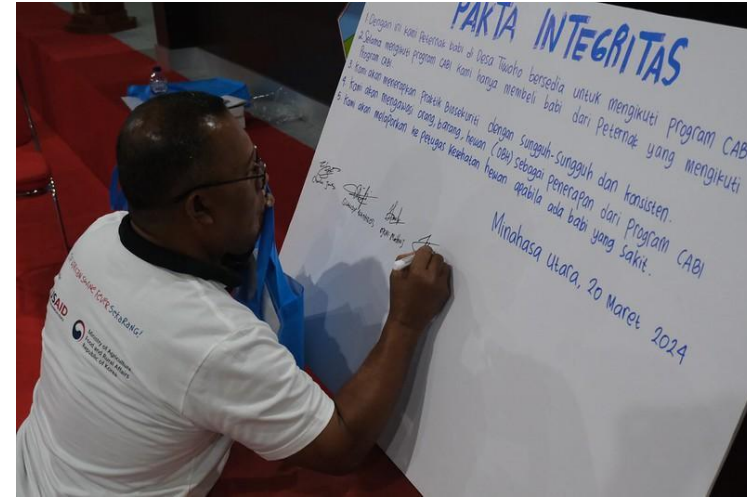 PAKTA INTEGRITAS
1. Dengan ini kami Peternak babi di Desa Tiwoho bersedia untuk mengikuti program CAB
2. Selama mengikuti program CABI kami hanya membeli babi dari Peternak yang mengikuti
Program CABI.
3. Kami akan menerapkan praktik Biosekuriti dengan sungguh-sungguh dan konsisten.
4. Kami akan mengawasi orang, barang, hewan (OBH) sebagai penerapan dari Program CABI
5. Kami akan melaporkan ke petugas kesehatan hewan apabila ada babi yang sakit.
Minahasa Utara, 20 Maret 2024
FEVER SEKARANG!
SAID
Ministry of Agriculture,
Food and Rural Affairs
Republic of Korea